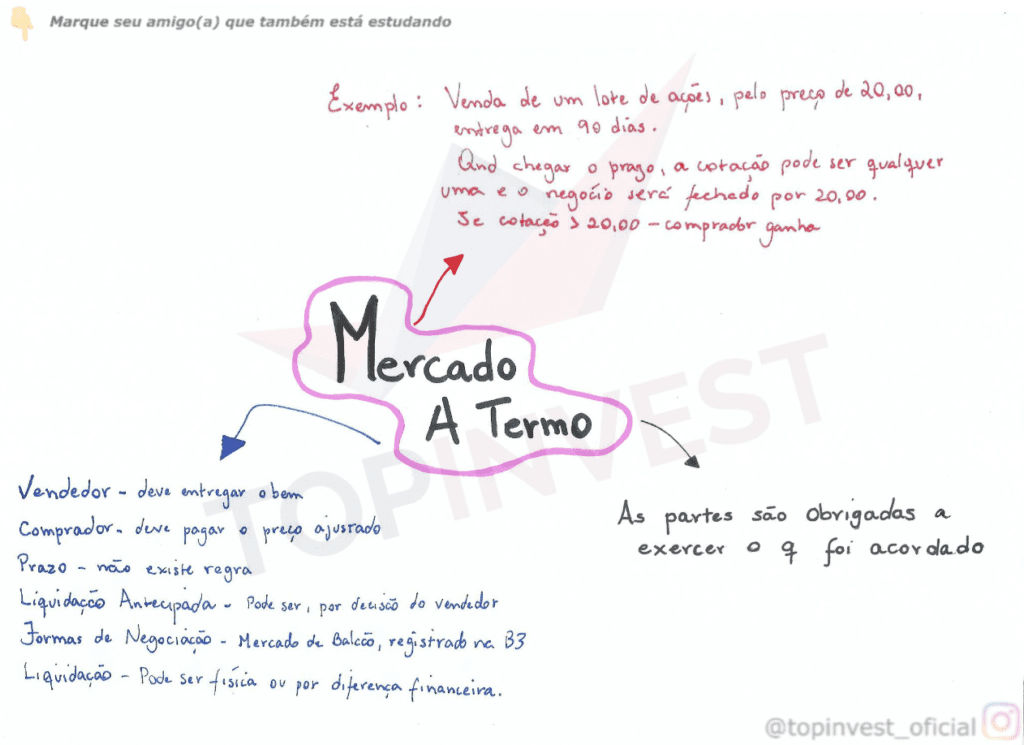 Marque seu amigo(a) que também está estudando
Exemplo: Venda de um lote de ações, pelo preço de 20,00,
entrega em 90 dias.
Qnd chegar o prazo, a cotação pode ser qualquer
uma e o negócio será fechado por 20,00.
Se cotação > 20,00 - comprador ganha
Mercado
A Termo
TOPINVEST
Vendedor - deve entregar o bem
Comprador - deve pagar o preço ajustado
Prazo - não existe regra
Liquidação Antecipada - Pode ser, por decisão do vendedor
Formas de Negociação - Mercado de Balcão, registrado na B3
Liquidação - Pode ser física ou por diferença financeira.
As partes são obrigadas a
exercer o q foi acordado
@topinvest_oficial